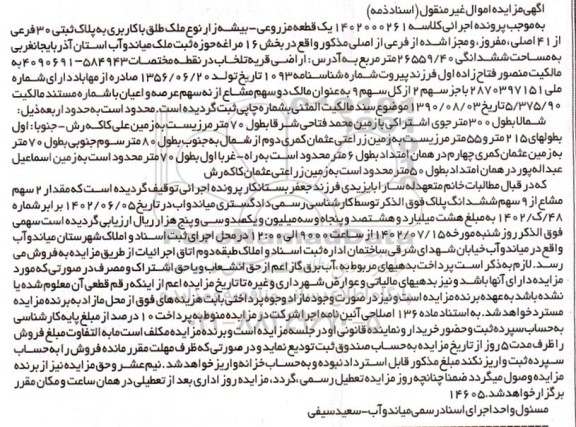 آگهی مزایده اموال غیر منقول (اسناد ذمه)
به موجب پرونده اجرائی کلاسه ۱۴۰۲۰۰۰۲۶۱ یک قطعه مزروعی- بیشه زار نوع ملک طلق با کاربری به پلاک ثبتی ۳۰ فرعی
از ۴۱ اصلی، مفروز و مجزا شده از فرعی از اصلی مذکور واقع در بخش ۱۶ مراغه حوزه ثبت ملک میاندوآب استان آذربایجانغربی
به مساحت ششدانگی ۲۶۵۵۹/۴۰ متر مربع به آدرس: اراضی قریه تلخاب در نقطه مختصات ۵۸۴۹۴۳-۴۰۹۰۶۹۱ به
مالکیت منصور فتاح زاده اول فرزند پیروت شماره شناسنامه ۱۰۹۳ تاریخ تولد ۱۳۵۶/۰۶/۲۰ صادره از مهاباد دارای شماره
ملی ۲۸۷۰۳۹۷۱۵۱ با جز سهم ۲ از کل سهم ۹ به عنوان مالک دو سهم مشاع از نه سهم عرصه و اعیان با شماره مستند مالکیت
۵/۳۷۵/۹۰ تاریخ ۱۳۹۰/۰۸/۰۳ موضوع سند مالکیت المثنی بشماره چاپی ثبت گردیده است. محدود است به حدود اربعه ذیل:
شمالا بطول ۳۰۰ متر جوی اشتراکی با زمین محمد فتاحی شرقا بطول ۷۰ متر مرزیست به زمین علی کاکه رش- جنوبا: اول
بطولهای ۲۱۵ متر و ۵۵ متر مرزیست به زمین زراعتی عثمان کمری دوم از شمال به جنوب بطول ۸۰ متر سوم جنوبی بطول ۷۰ متر
به زمین عثمان کمری چهارم در همان امتداد بطول ۶ متر محدود است به راه- غربا اول بطول ۷۰ متر محدود است به زمین اسماعیل
عبداله پور در همان امتداد بطول ۵۰ متر محدود است به زمین زراعتی عثمان کاکه رش
که در قبال مطالبات خانم متعهدله سارا بایزیدی فرزند جعفر بستانکار پرونده اجرائی توقیف گردیده است که مقدار ۲ سهم
مشاع از ۹ سهم ششدانگ پلاک فوق الذکر توسط کارشناسی رسمی دادگستری میاندواب در تاریخ ۱۴۰۲/۰۶/۰۵ برابر شماره
۴۸/ک/۱۴۰۲ به مبلغ هشت میلیارد و هشتصد و پنجاه و سه میلیون و یکصد و سی و پنج هزار ریال ارزیابی گردیده است سهمی
فوق الذکر روز شنبه مورخه ۱۴۰۲/۰۷/۱۵ از ساعت ۹:۰۰ الی ۱۲:۰۰ در محل اجرای ثبت اسناد و املاک شهرستان میاندوآب
واقع در میاندوآب خیابان شهدای شرقی ساختمان اداره ثبت اسناد و املاک طبقه دوم اتاق اجرائیات از طریق مزایده به فروش می
رسد. لازم به ذکر است پرداخت بدهیهای مربوط به آب برق گاز اعم از حق انشعاب و یا حق اشتراک و مصرف در صورتی که مورد
مزایده دارای آنها باشد و نیز بدهیهای مالیاتی و عوارض شهرداری و غیره تا تاریخ مزایده اعم از اینکه رقم قطعی آن معلوم شده یا
نشده باشد به عهده برنده مزایده است ونیز در صورت وجود مازاد وجوه پرداختی بابت هزینه های فوق از محل مازاد به برنده مزایده
مسترد خواهد شد. به استناد ماده ۱۳۶ اصلاحی آئین نامه اجرا شرکت در مزایده منوط به پرداخت ۱۰ درصد از مبلغ پایه کارشناسی
به حساب سپرده ثبت و حضور خریدار و نماینده قانونی او در جلسه مزایده است و برنده مزایده مکلف است ما به التفاوت مبلغ فروش
را ظرف مدت ۵ روز از تاریخ مزایده به حساب صندوق ثبت تودیع نماید و در صورتی که ظرف مهلت مقرر مانده فروش را به حساب
سپرده ثبت واریز نکند مبلغ مذکور قابل استرداد نبوده و به حساب خزانه واریز خواهد شد. نیم عشر و حق مزایده نیز از برنده
مزایده وصول میگردد ضمنا چنانچه روز مزایده تعطیل رسمی، گردد، مزایده روز اداری بعد از تعطیلی در همان ساعت و مکان مقرر
برگزار خواهد شد. ۱۴۶۰۵
مسئول واحد اجرای اسناد رسمی میاندوآب- سعید سیفی